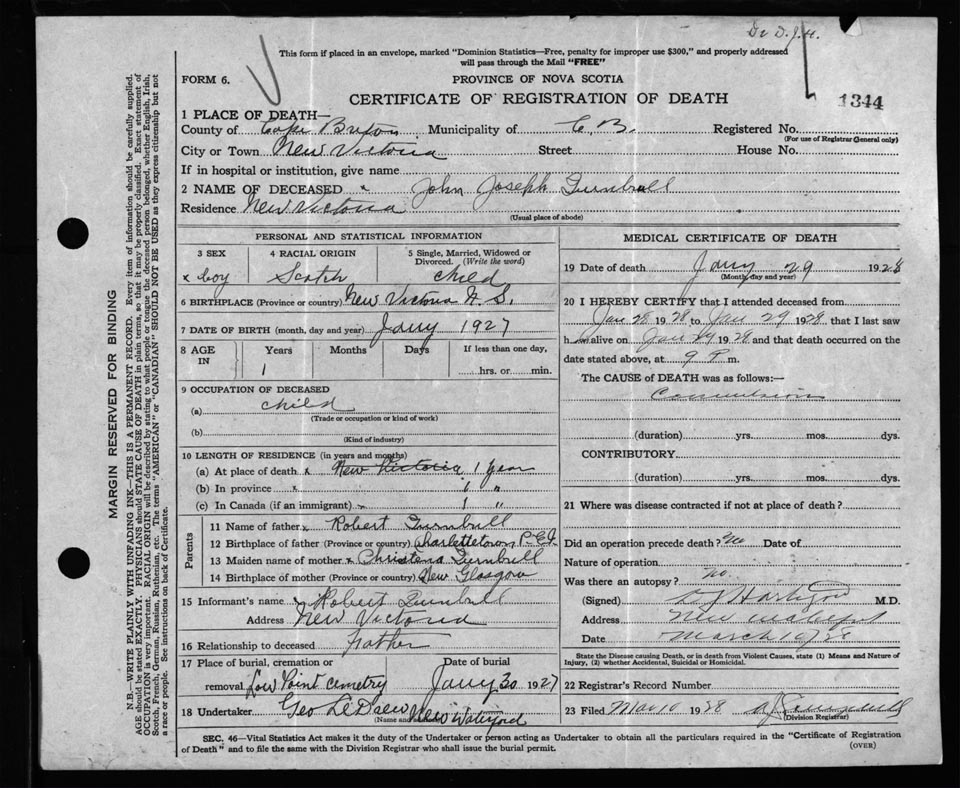 Dr D.J.H.
This form if placed in an envelope, marked "Dominion Statistics—Free, penalty for improper use $300," and properly addressed
will pass through the Mail "FREE"
FORM 6.
PROVINCE OF NOVA SCOTIA
CERTIFICATE OF REGISTRATION OF DEATH
1344
1 PLACE OF DEATH—
County of Cape Breton Municipality of C. B. Registered No.
(For use of Registrar General only)
City or Town New Victoria Street House No.
If in hospital or institution, give name
2 NAME OF DECEASED x John Joseph Turnbull
Residence New Victoria
(Usual place of abode)
PERSONAL AND STATISTICAL INFORMATION
3 SEX 4 RACIAL ORIGIN 5 Single, Married, Widowed or Divorced. (Write the word)
x boy Scotch child
6 BIRTHPLACE (Province or country) New Victoria N. S.
7 DATE OF BIRTH (month, day and year) Jany 1927
8 AGE IN Years Months Days If less than one day,
1 hrs. or min.
9 OCCUPATION OF DECEASED
(a) child
(Trade or occupation or kind of work)
(b)
(Kind of industry)
10 LENGTH OF RESIDENCE (in years and months)
(a) At place of death x New Victoria 1 year
(b) In province x 1 "
(c) In Canada (if an immigrant) x 1 "
Parents
11 Name of father x Robert Turnbull
12 Birthplace of father (Province or country) Charlettetown P.E.I.
13 Maiden name of mother x Christena Turnbull
14 Birthplace of mother (Province or country) New Glasgow
15 Informant's name x Robert Turnbull
Address New Victoria
16 Relationship to deceased father
17 Place of burial, cremation or removal Low Point cemetry
Date of burial Jany 30 1927
18 Undertaker Geo LeDrew New Waterford
(Name and
MEDICAL CERTIFICATE OF DEATH
19 Date of death Jany 29 1928
(Month, day and year)
20 I HEREBY CERTIFY that I attended deceased from
Jan 28 1928 to Jan 29 1928 that I last saw
h im alive on Jan 29 1928 and that death occurred on the
date stated above, at 9 P m.
The CAUSE of DEATH was as follows:—
Convulsions
(duration) yrs. mos. dys.
CONTRIBUTORY
(duration) yrs. mos. dys.
21 Where was disease contracted if not at place of death?
Did an operation precede death? no Date of
Nature of operation
Was there an autopsy? no.
(Signed) M.D.
Address New Waterford
Date March 10/28
State the Disease causing Death, or in death from Violent Causes, state (1) Means and Nature of
Injury, (2) whether Accidental, Suicidal or Homicidal.
22 Registrar's Record Number
23 Filed Mar 10 1928
(Division Registrar)
SEC. 46—Vital Statistics Act makes it the duty of the Undertaker or person acting as Undertaker to obtain all the particulars required in the "Certificate of Registration
of Death" and to file the same with the Division Registrar who shall issue the burial permit.
(OVER)
MARGIN RESERVED FOR BINDING
N.B.—WRITE PLAINLY WITH UNFADING INK—THIS IS A PERMANENT RECORD. Every item of information should be carefully supplied.
AGE should be stated EXACTLY. PHYSICIANS should STATE CAUSE OF DEATH in plain terms, so that it may be properly classified. Exact statement of
OCCUPATION is very important. RACIAL ORIGIN will be described by stating to what people or tongue the deceased person belonged, whether English, Irish,
Scotch, French, German, Russian, Ruthenian, etc. The terms "AMERICAN" or "CANADIAN" SHOULD NOT BE USED as they express citizenship but not
a race or people. See instructions on back of Certificate.